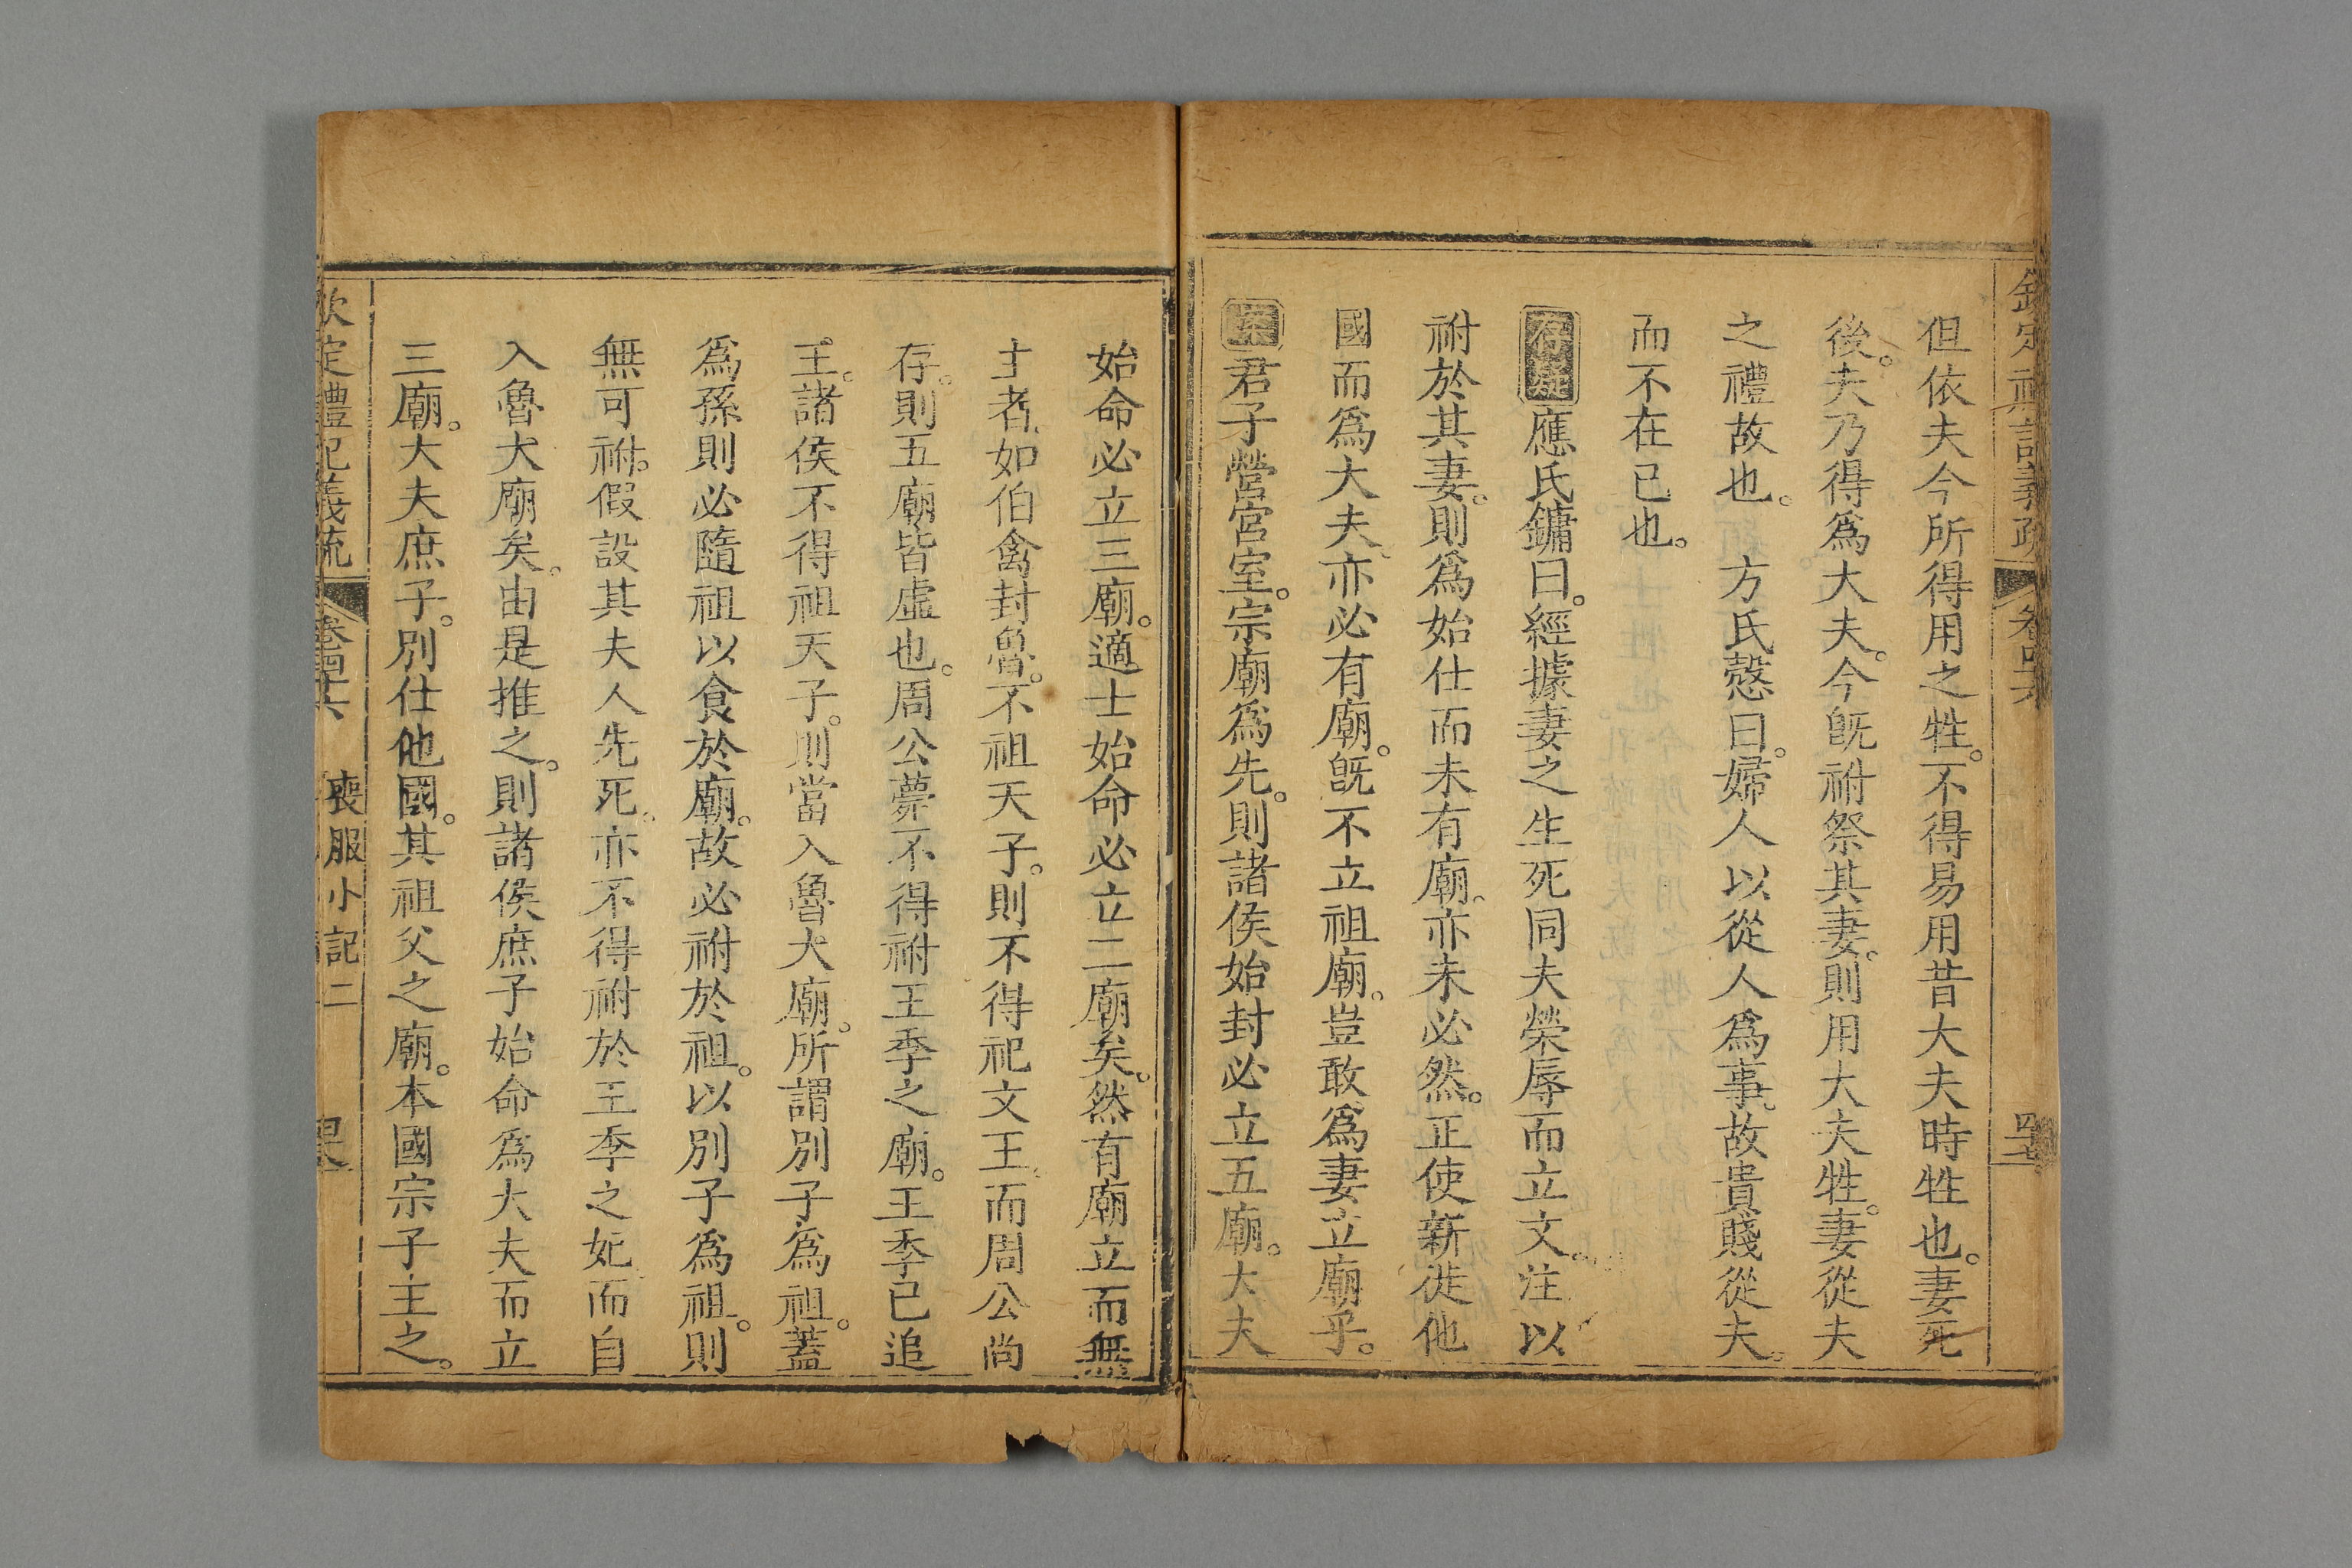 但依夫今所得用之牲。不得易用昔大夫時牲也。妻死
後。夫乃得爲大夫。今旣祔祭其妻。則用大夫牲。妻從夫
之禮故也。　方氏慤曰。婦人以從人爲事。故貴賤從夫。
而不在己也。
存異應氏鏞曰。經據妻之生死同夫榮辱而立文。注以
祔於其妻。則爲始仕而未有廟。亦未必然。正使新徙他
國而爲大夫。亦必有廟。旣不立祖廟。豈敢爲妻立廟乎。
案君子營宮室。宗廟爲先。則諸侯始封必立五廟。大夫
始命必立三廟。適士始命必立二廟矣。然有廟立而無
主者。如伯禽封魯。不祖天子。則不得祀文王。而周公尚
存。則五廟皆虛也。周公薨不得祔王季之廟。王季已追
王。諸侯不得祖天子。則當入魯大廟。所謂別子爲祖。蓋
爲孫則必隨祖以食於廟。故必祔於祖。以別子爲祖。則
無可祔。假設其夫人先死。亦不得祔於王季之妃。而自
入魯大廟矣。由是推之。則諸侯庶子始命爲大夫而立
三廟。大夫庶子。別仕他國。其祖父之廟。本國宗子主之。
欽定禮記義疏
卷四十六
喪服小記二